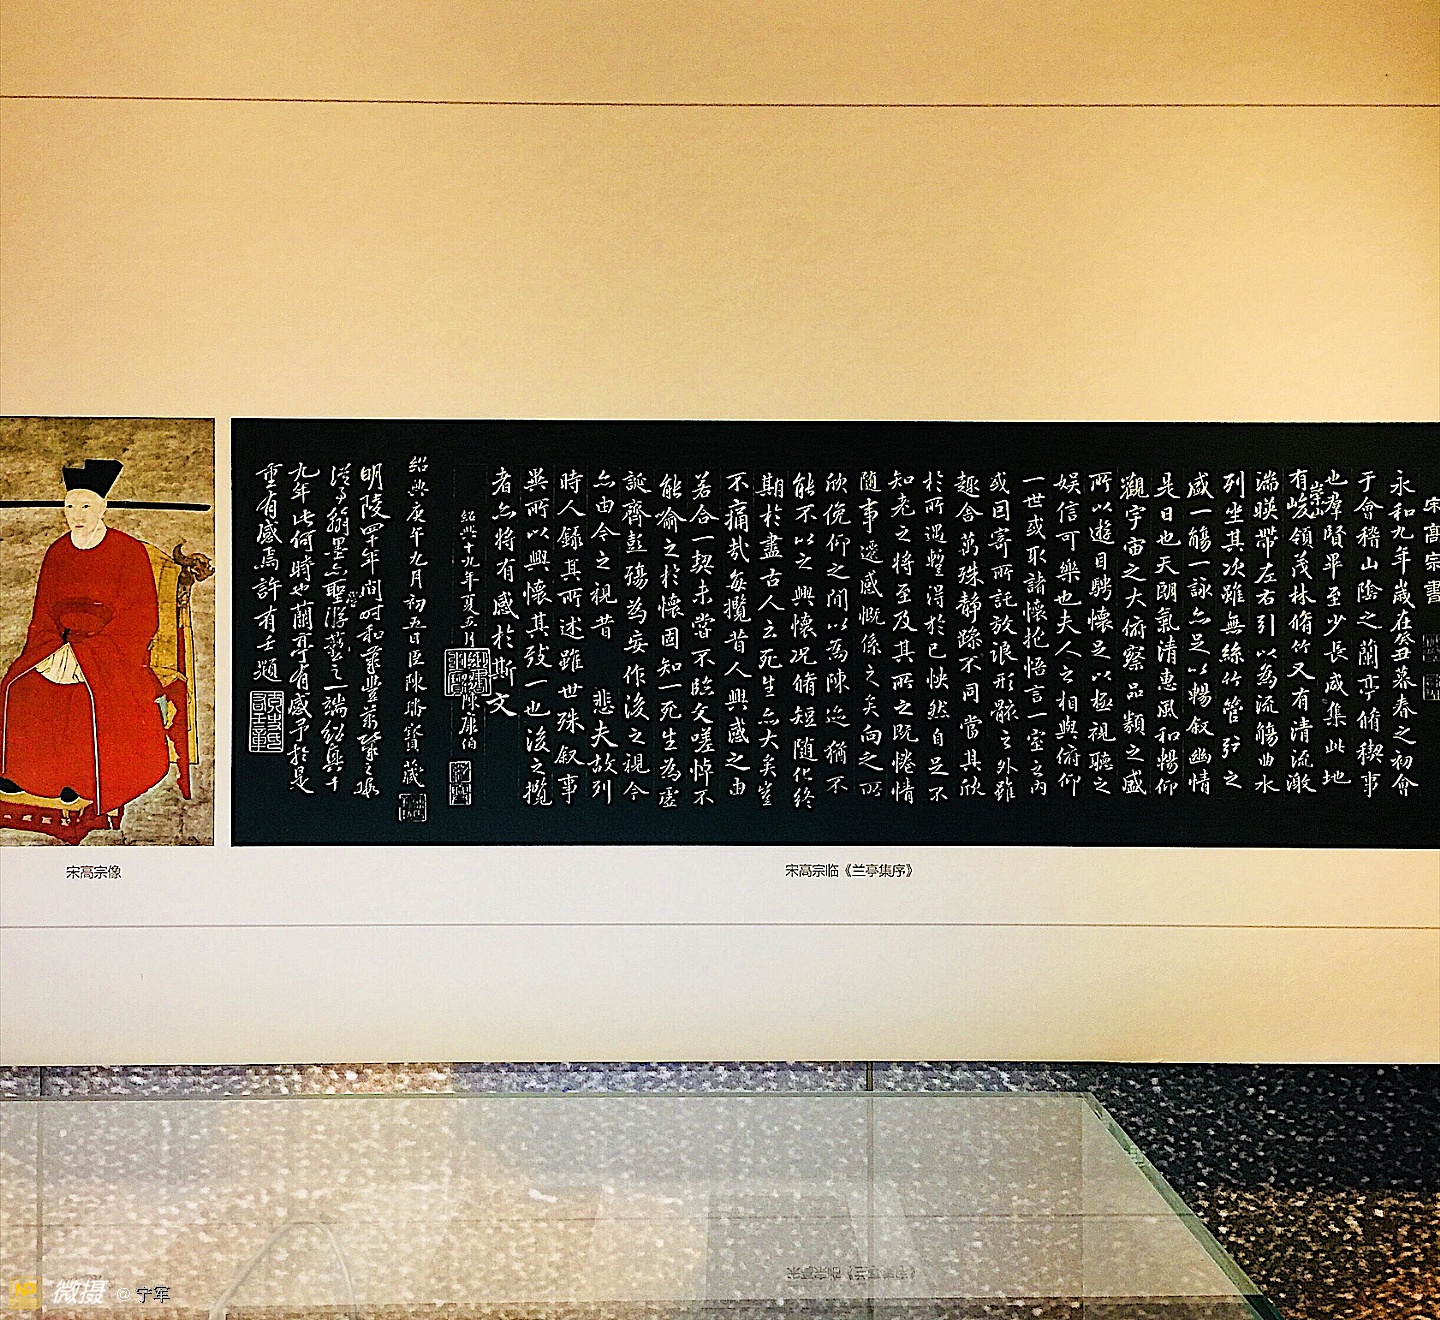 宋高宗書
永和九年歲在癸丑暮春之初會
于會稽山陰之蘭亭脩稧事
也羣賢畢至少長咸集此地
有崇山峻領茂林脩竹又有清流激
湍暎帶左右引以為流觴曲水
列坐其次雖無絲竹管弦之
盛一觴一詠亦足以暢叙幽情
是日也天朗氣清惠風和暢仰
觀宇宙之大俯察品類之盛
所以遊目騁懷足以極視聽之
娱信可樂也夫人之相與俯仰
一世或取諸懷抱悟言一室之內
或因寄所託放浪形骸之外雖
趣舍萬殊靜躁不同當其欣
於所遇暫得於己怏然自足不
知老之將至及其所之既惓情
隨事遷感慨係之矣向之所
欣俛仰之閒以為陳迹猶不
能不以之興懷况脩短隨化終
期於盡古人云死生亦大矣豈
不痛哉每攬昔人興感之由
若合一契未嘗不臨文嗟悼不
能喻之於懷固知一死生為虛
誕齊彭殤為妄作後之視今
亦由今之視昔 悲夫故列
時人錄其所述雖世殊叙事
異所以興懷其致一也後之攬
者亦將有感於斯文
紹興十九年夏五月 陳康伯
紹興庚午九月初五日臣陳 寶藏
明陵四十年間時和
翰墨亦聖 之一端紹興十
九年此何時也蘭亭有感予於是
重有感焉許有壬題
宋高宗像
宋高宗临《兰亭集序》
微摄 @ 宁军